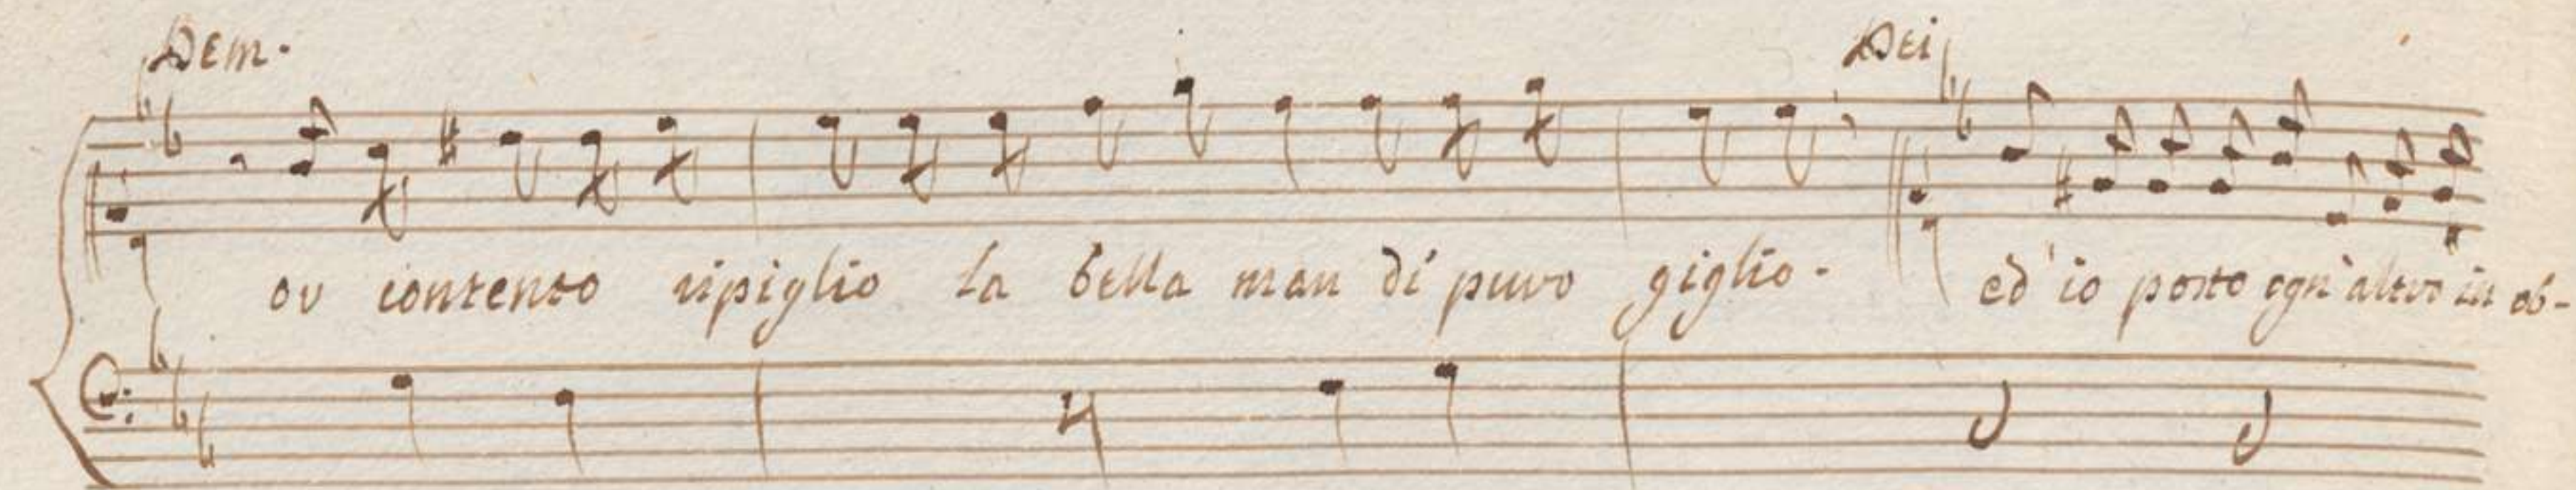 Dem. Dei
or contento ripiglio la bella man di puro giglio. ed' io posto ogn' altro in ob-